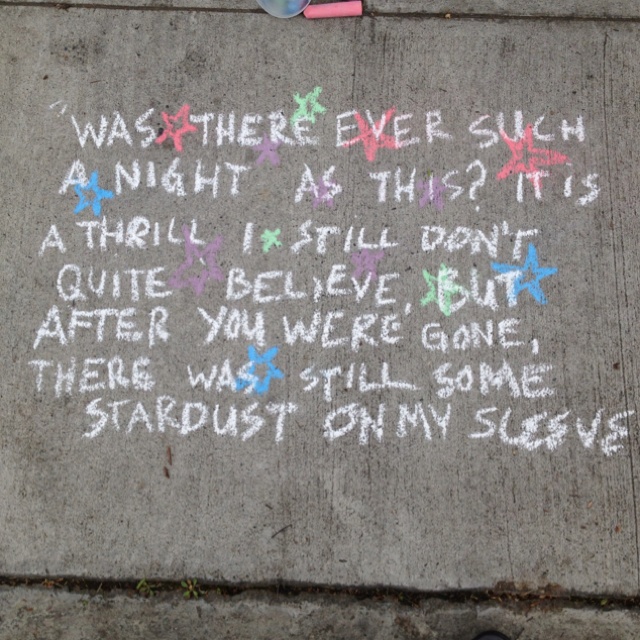 "WAS THERE EVER SUCH
A NIGHT AS THIS? IT IS
A THRILL I STILL DON'T
QUITE BELIEVE, BUT
AFTER YOU WERE GONE,
THERE WAS STILL SOME
STARDUST ON MY SLEEVE